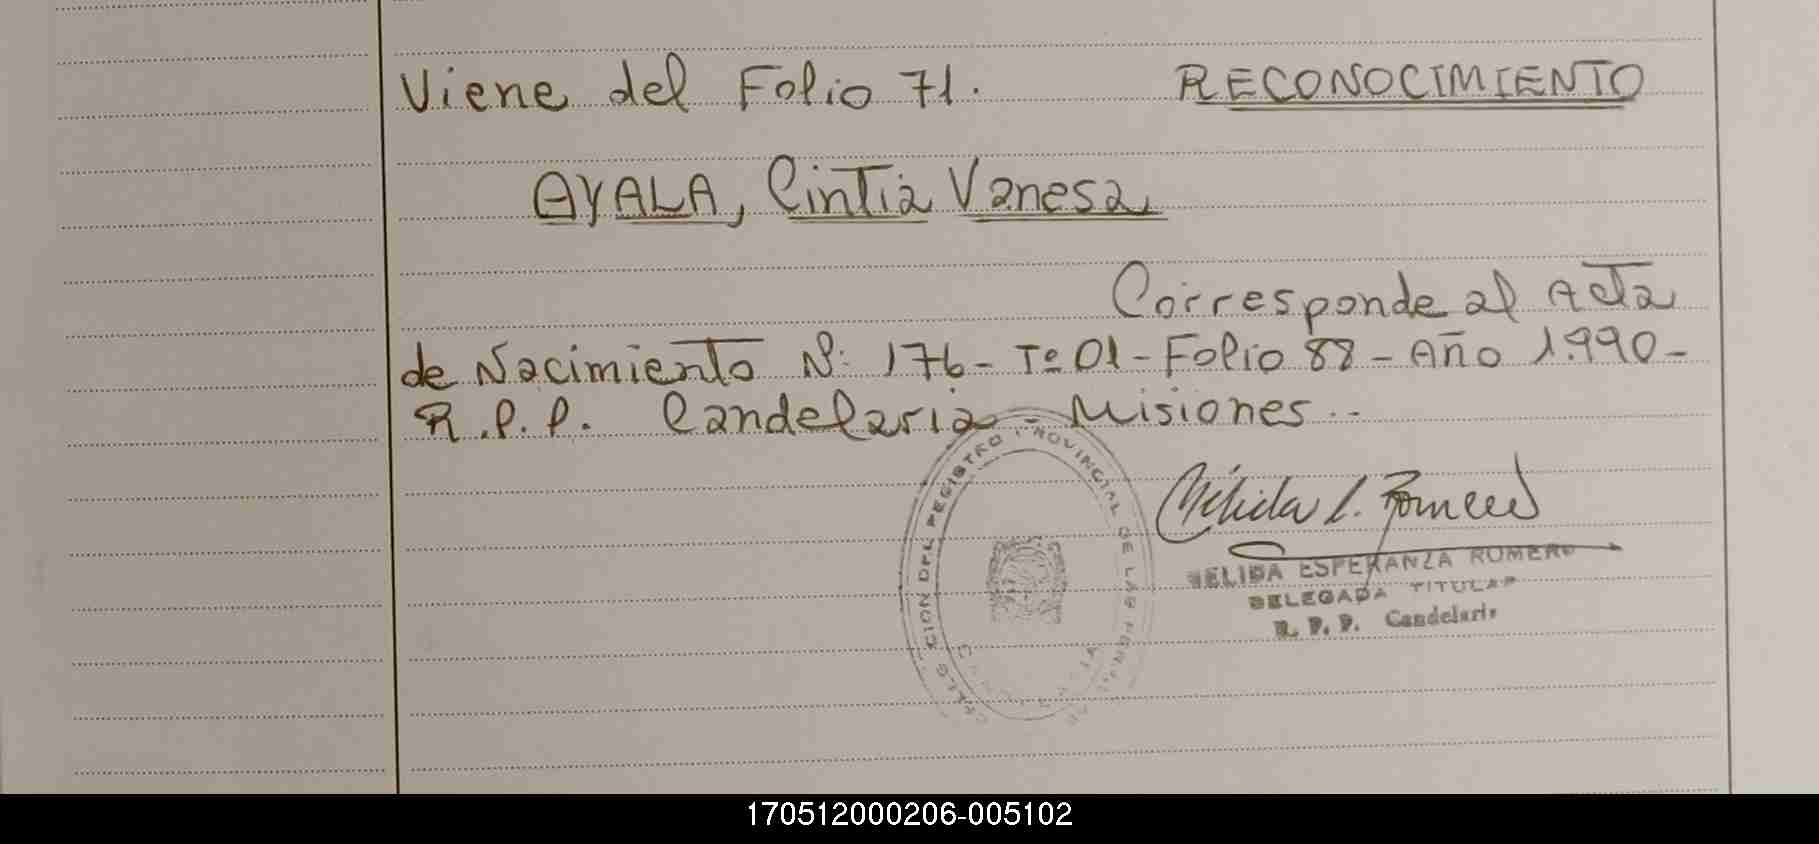 Viene del Folio 71. RECONOCIMIENTO
AYALA, Cintia Vanesa
Corresponde al Acta
de Nacimiento Nº: 176- Tº 01 - Folio 88 - Año 1.990-
R.P.P. Candelaria - Misiones..
NELIDA ESPERANZA ROMERO
DELEGADA TITULAR
R. P. P. Candelaria
REGISTRO PROVINCIAL DE LAS
170512000206-005102